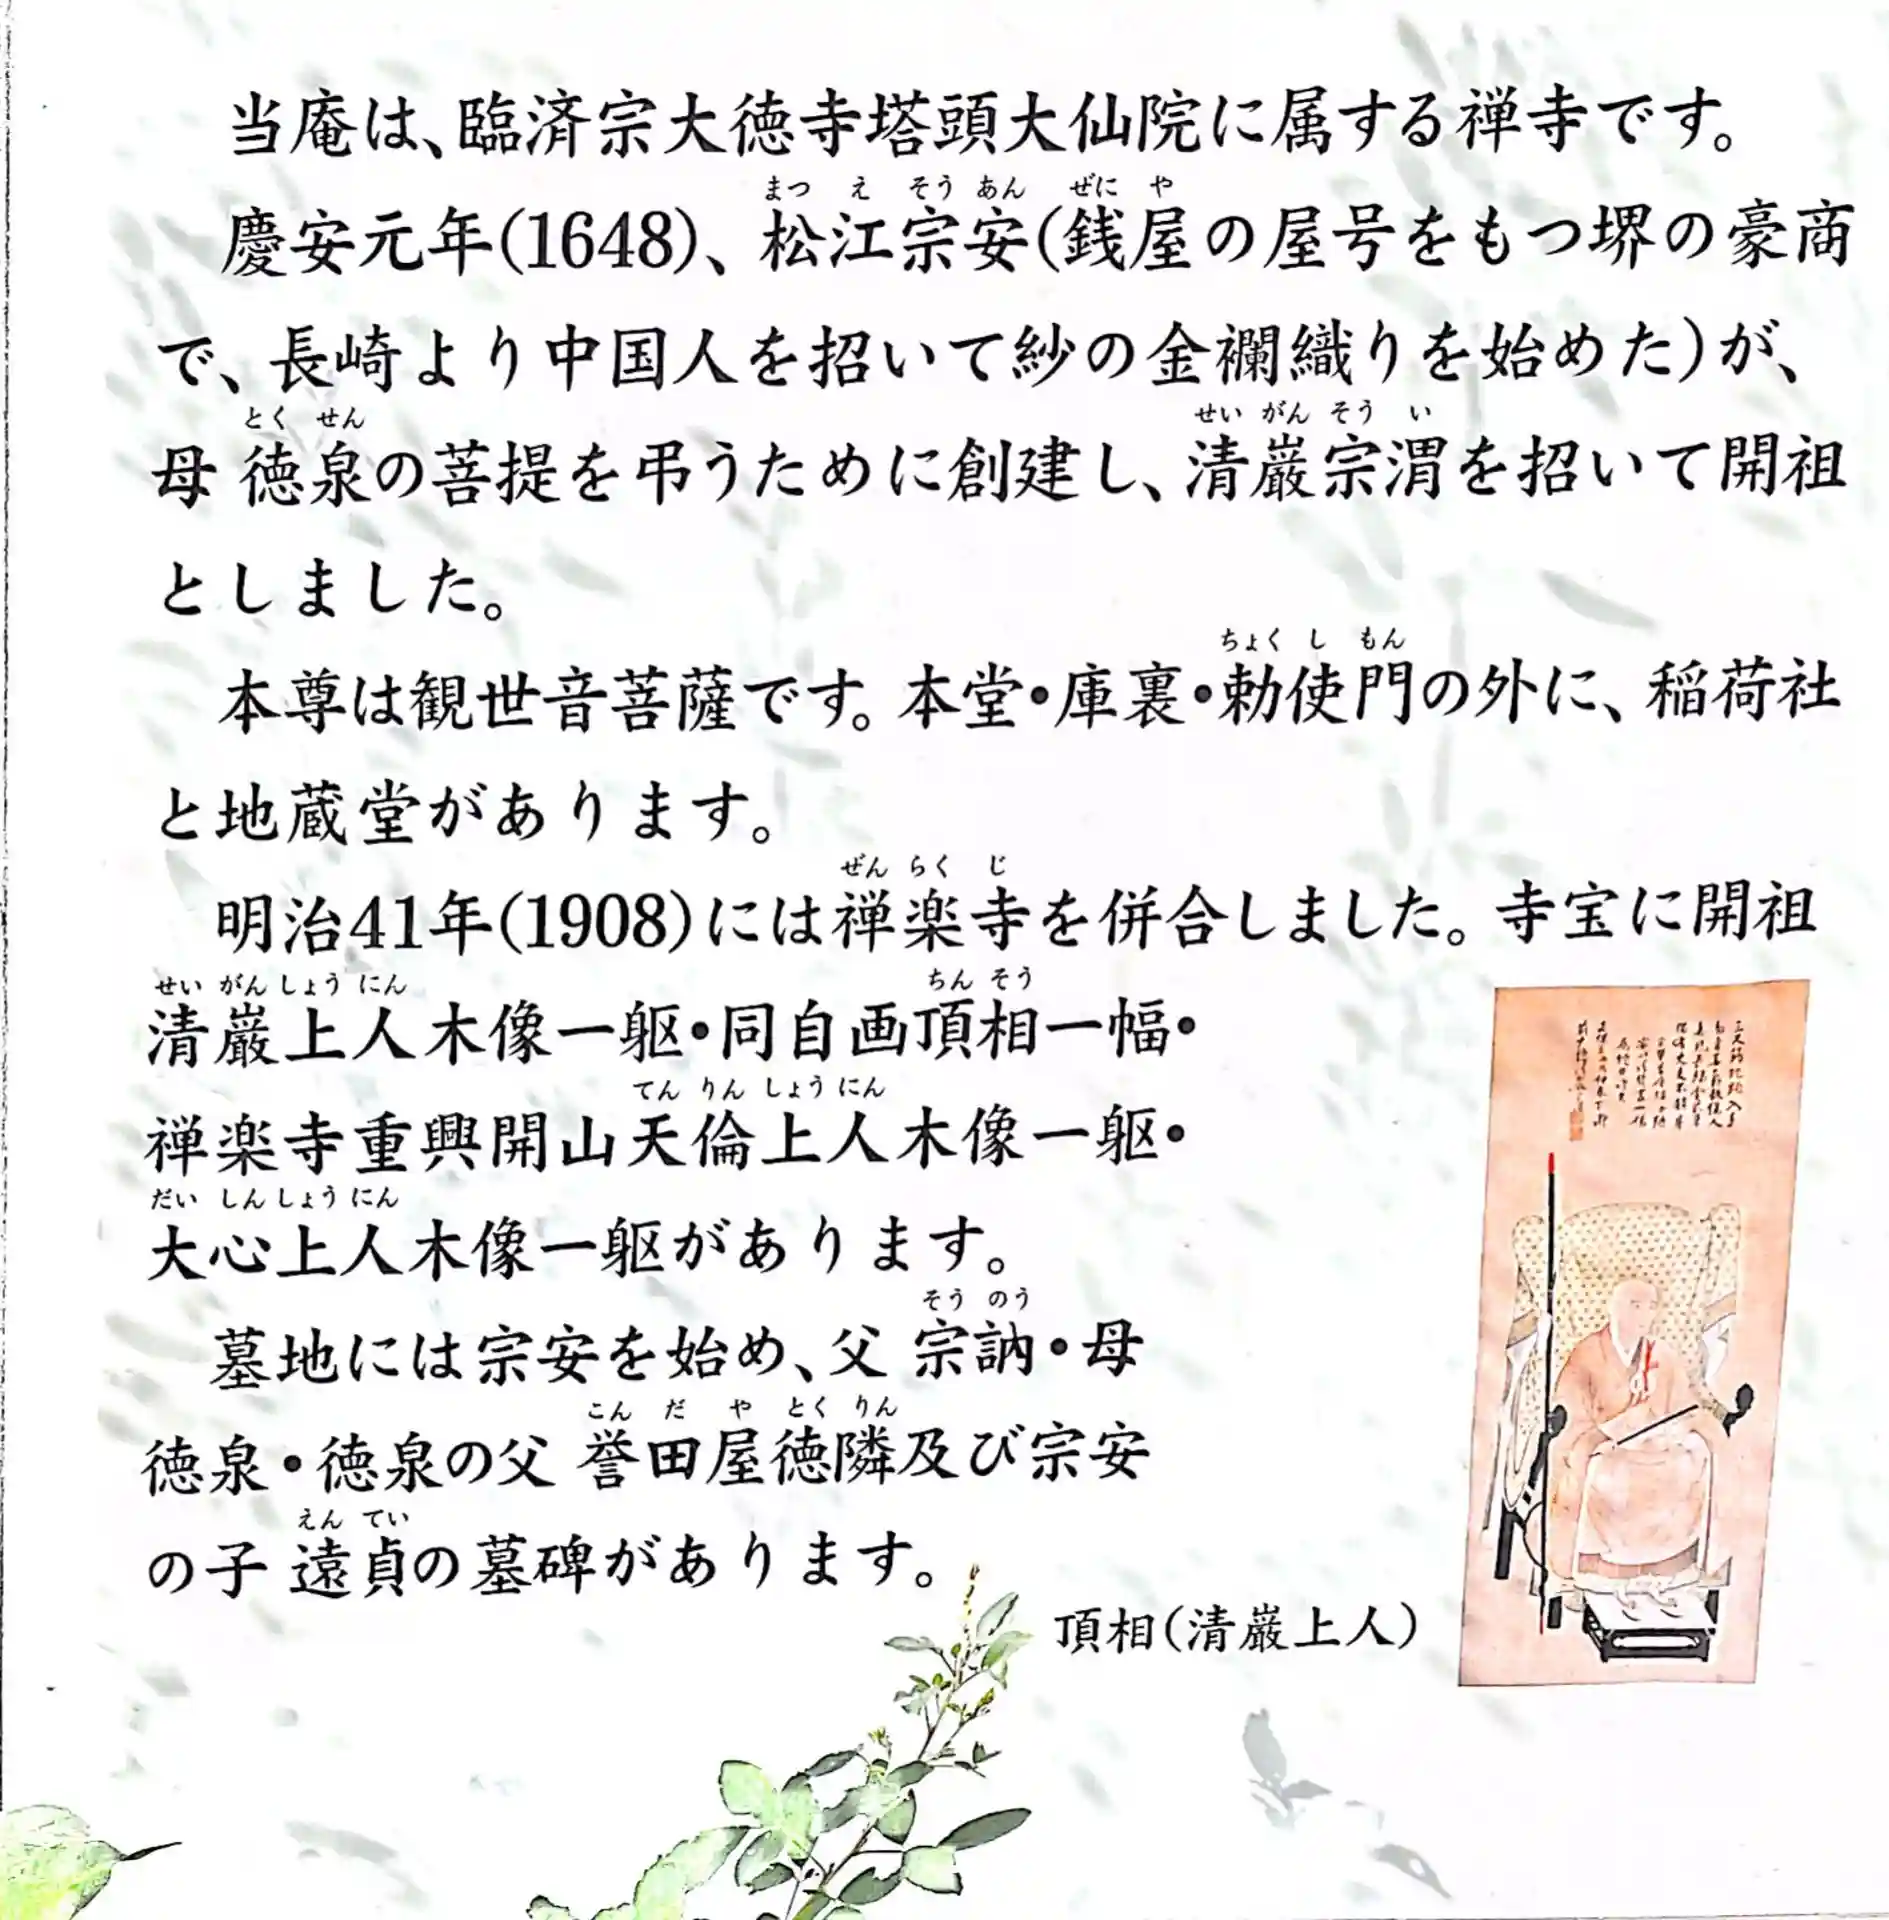 当庵は、臨済宗大徳寺塔頭大仙院に属する禅寺です。
まつ え そう あん ぜに や
慶安元年(1648)、松江宗安(銭屋の屋号をもつ堺の豪商
で、長崎より中国人を招いて紗の金襴織りを始めた)が、
とく せん せい がん そう い
母 徳泉の菩提を弔うために創建し、清巌宗渭を招いて開祖
としました。
ちょく し もん
本尊は観世音菩薩です。本堂・庫裏・勅使門の外に、稲荷社
と地蔵堂があります。
ぜん らく じ
明治41年(1908)には禅楽寺を併合しました。寺宝に開祖
せい がん しょう にん ちん そう
清巌上人木像一躯・同自画頂相一幅・
てん りん しょう にん
禅楽寺重興開山天倫上人木像一躯・
だい しん しょう にん
大心上人木像一躯があります。
そう のう
墓地には宗安を始め、父 宗訥・母
こん だ や とく りん
徳泉・徳泉の父 誉田屋徳隣及び宗安
えん てい
の子 遠貞の墓碑があります。
頂相(清巌上人)